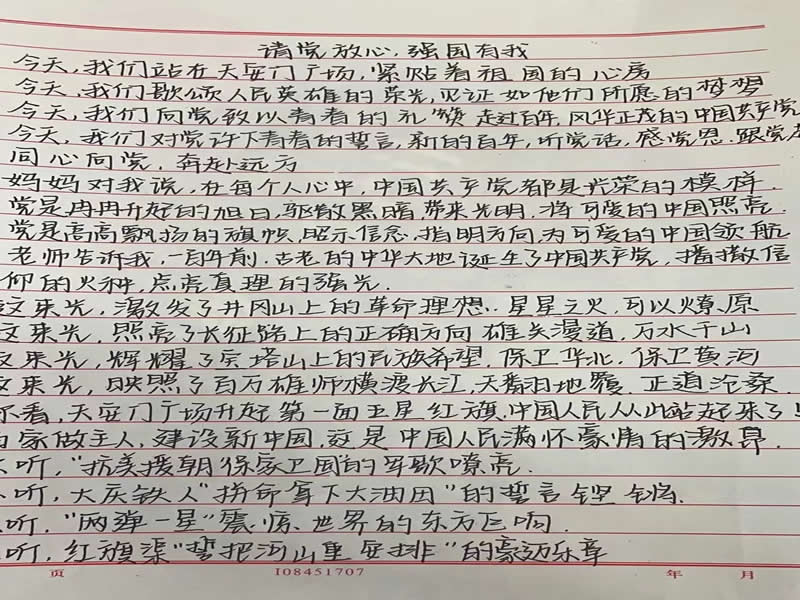 请党放心,强国有我
今天,我们站在天安门广场,紧贴着祖国的心房
今天,我们歌颂人民英雄的荣光,见证如他们所愿的梦想
今天,我们向党致以青春的礼赞 走过百年,风华正茂的中国共产党
今天,我们对党许下青春的誓言,新的百年,听党话,感党恩,跟党走
同心向党,奔赴远方
妈妈对我说,在每个人心中,中国共产党都是光荣的模样.
党是冉冉升起的旭日,驱散黑暗,带来光明,将可爱的中国照亮.
党是高高飘扬的旗帜,昭示信念,指明方向,为可爱的中国领航
老师告诉我,一百年前,古老的中华大地诞生了中国共产党,播撒信
仰的火种,点亮真理的强光.
这束光,激发了井冈山上的革命理想..星星之火,可以燎原
这束光,照亮了长征路上的正确方向 雄关漫道,万水千山
这束光,辉耀了宝塔山上的民族希望.保卫华北,保卫黄河
这束光,映照了百万雄师横渡长江,天翻地覆.正道沧桑.
看,天安门广场升起第一面五星红旗,中国人民从此站起来了!
家做主人,建设新中国,这是中国人民满怀豪情的激昂.
听,"抗美援朝保家卫国"的军歌嘹亮.
听,大庆铁人"拼命拿下大油田"的誓言铿锵.
听,"两弹一星"震惊世界的东方巨响.
听,红旗渠"誓把河山重安排"的豪迈乐章
页 I08451707 年 月